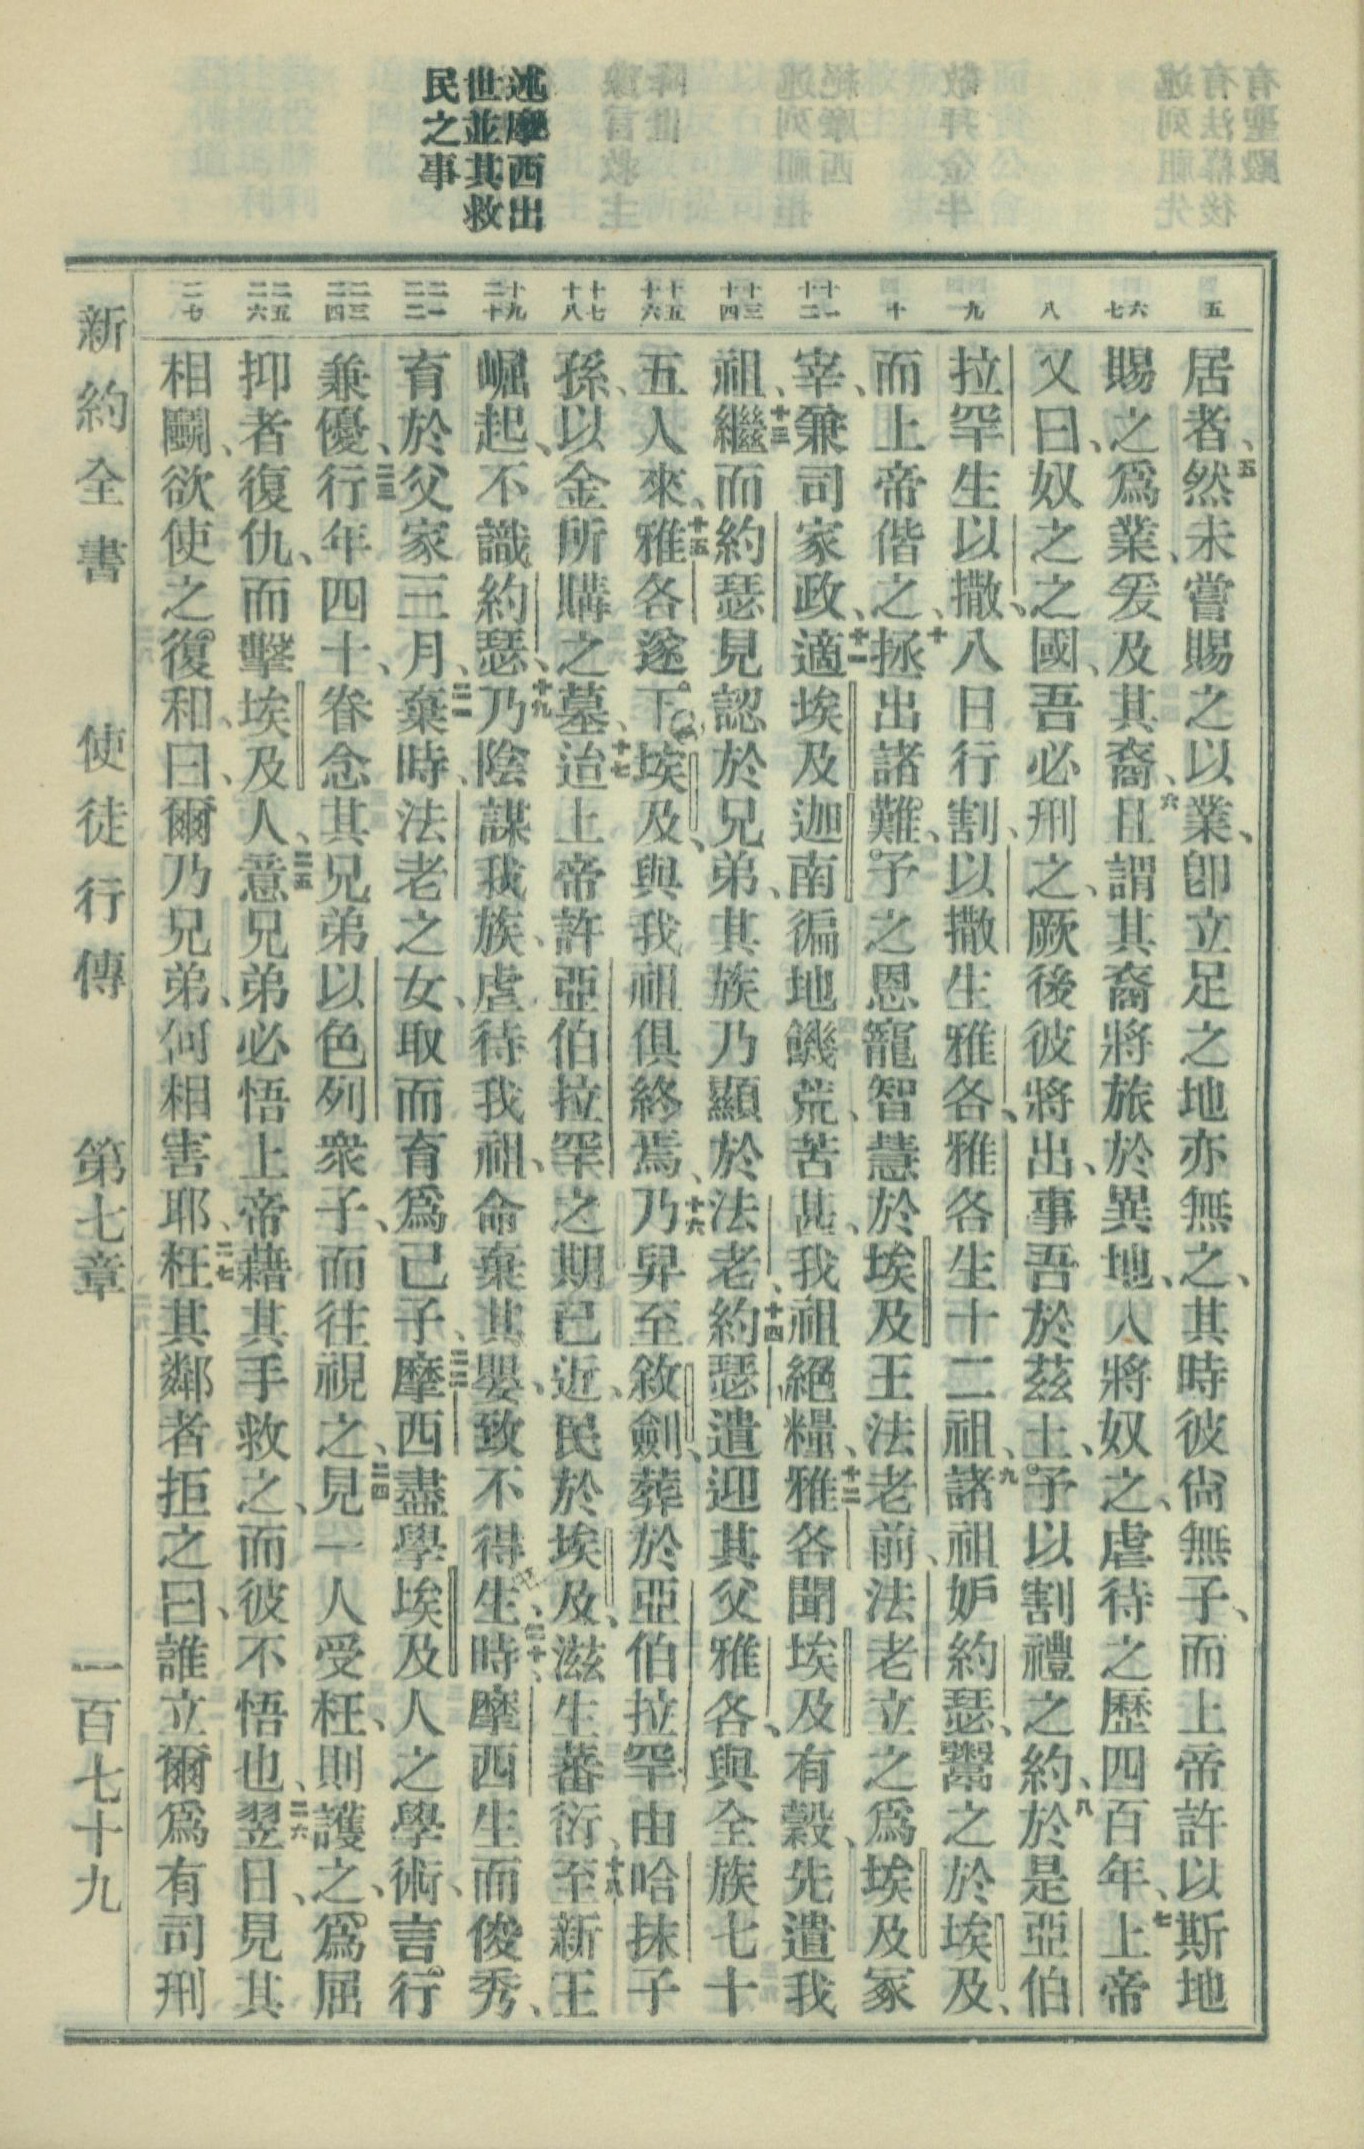 述摩西出
世並其救
民之事
五
六
七
八
九
十
十一
十二
十三
十四
十五
十六
十七
十八
十九
二十
二一
二二
二三
二四
二五
二六
二七
居者、五然未嘗賜之以業、卽立足之地亦無之、其時彼尙無子、而上帝許以斯地
賜之爲業、爰及其裔、六且謂其裔將旅於異地、人將奴之、虐待之歷四百年、七上帝
又曰、奴之之國、吾必刑之、厥後彼將出、事吾於茲土、予以割禮之約、八於是亞伯
拉罕生以撒、八日行割、以撒生雅各、雅各生十二祖、九諸祖妒約瑟、鬻之於埃及、
而上帝偕之、十拯出諸難、予之恩寵智慧於埃及王法老前、法老立之爲埃及冢
宰、兼司家政、十一適埃及迦南徧地饑荒、苦甚、我祖絕糧、十二雅各聞埃及有穀、先遣我
祖、十三繼而約瑟見認於兄弟、其族乃顯於法老、十四約瑟遣迎其父雅各、與全族七十
五人來、十五雅各遂下埃及、與我祖俱終焉、十六乃舁至敘劍、葬於亞伯拉罕由哈抹子
孫、以金所購之墓、十七迨上帝許亞伯拉罕之期已近、民於埃及、滋生蕃衍、十八至新王
崛起、不識約瑟、十九乃陰謀我族、虐待我祖、命棄其嬰、致不得生、二十時摩西生而俊秀、
育於父家三月、二一棄時、法老之女、取而育爲己子、二二摩西盡學埃及人之學術、言行
兼優、二三行年四十、眷念其兄弟以色列衆子、而往視之、二四見一人受枉、則護之、爲屈
抑者復仇、而擊埃及人、二五意兄弟必悟上帝藉其手救之、而彼不悟也、二六翌日、見其
相鬬、欲使之復和、曰、爾乃兄弟、何相害耶、二七枉其鄰者拒之曰、誰立爾爲有司刑
新約全書 使徒行傳 第七章 一百七十九